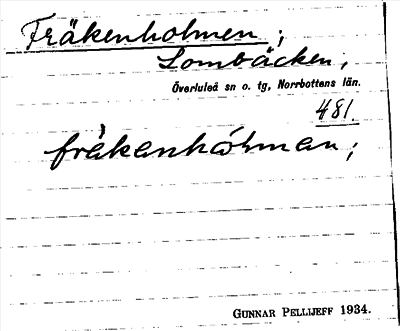 Fräkenholmen;
Lombäcken,
Överluleå sn o. tg, Norrbottens län.
481.
frä̀kenhólman;
GUNNAR PELLIJEFF 1934.